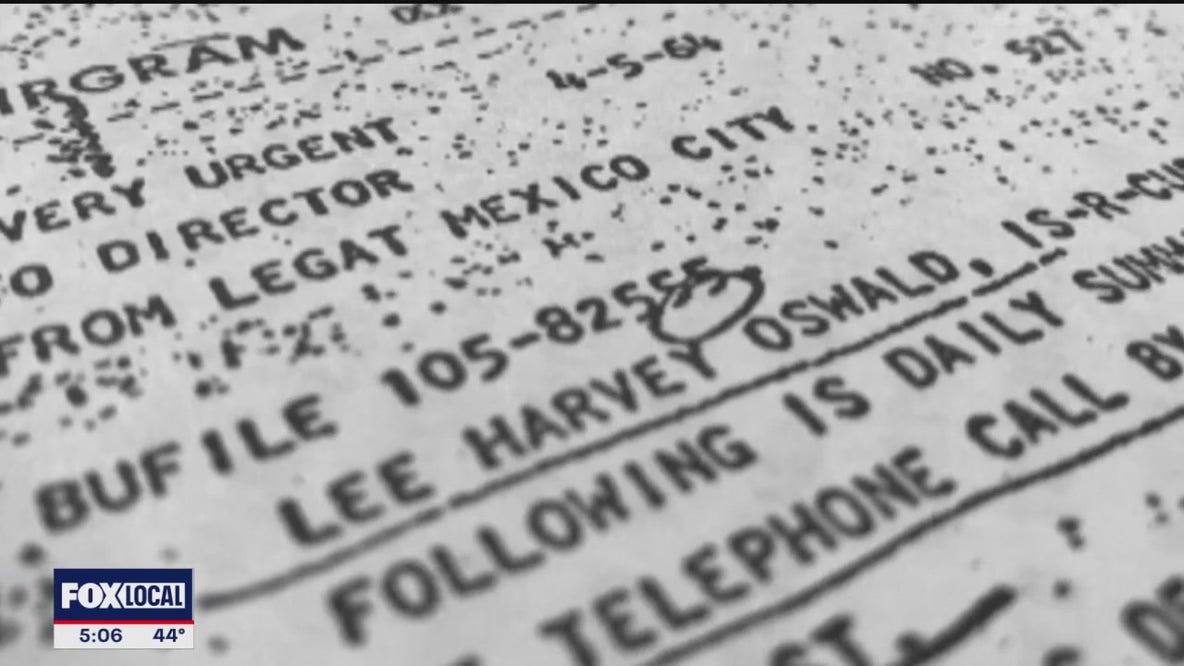 IRGRAM
4-5-64
NO. 527
VERY URGENT
TO DIRECTOR
FROM LEGAT MEXICO CITY
BUFILE 105-82555
LEE HARVEY OSWALD, IS-R-CU
FOLLOWING IS DAILY SUMM
TELEPHONE CALL BY
ST.
FOX LOCAL
5:06 44°